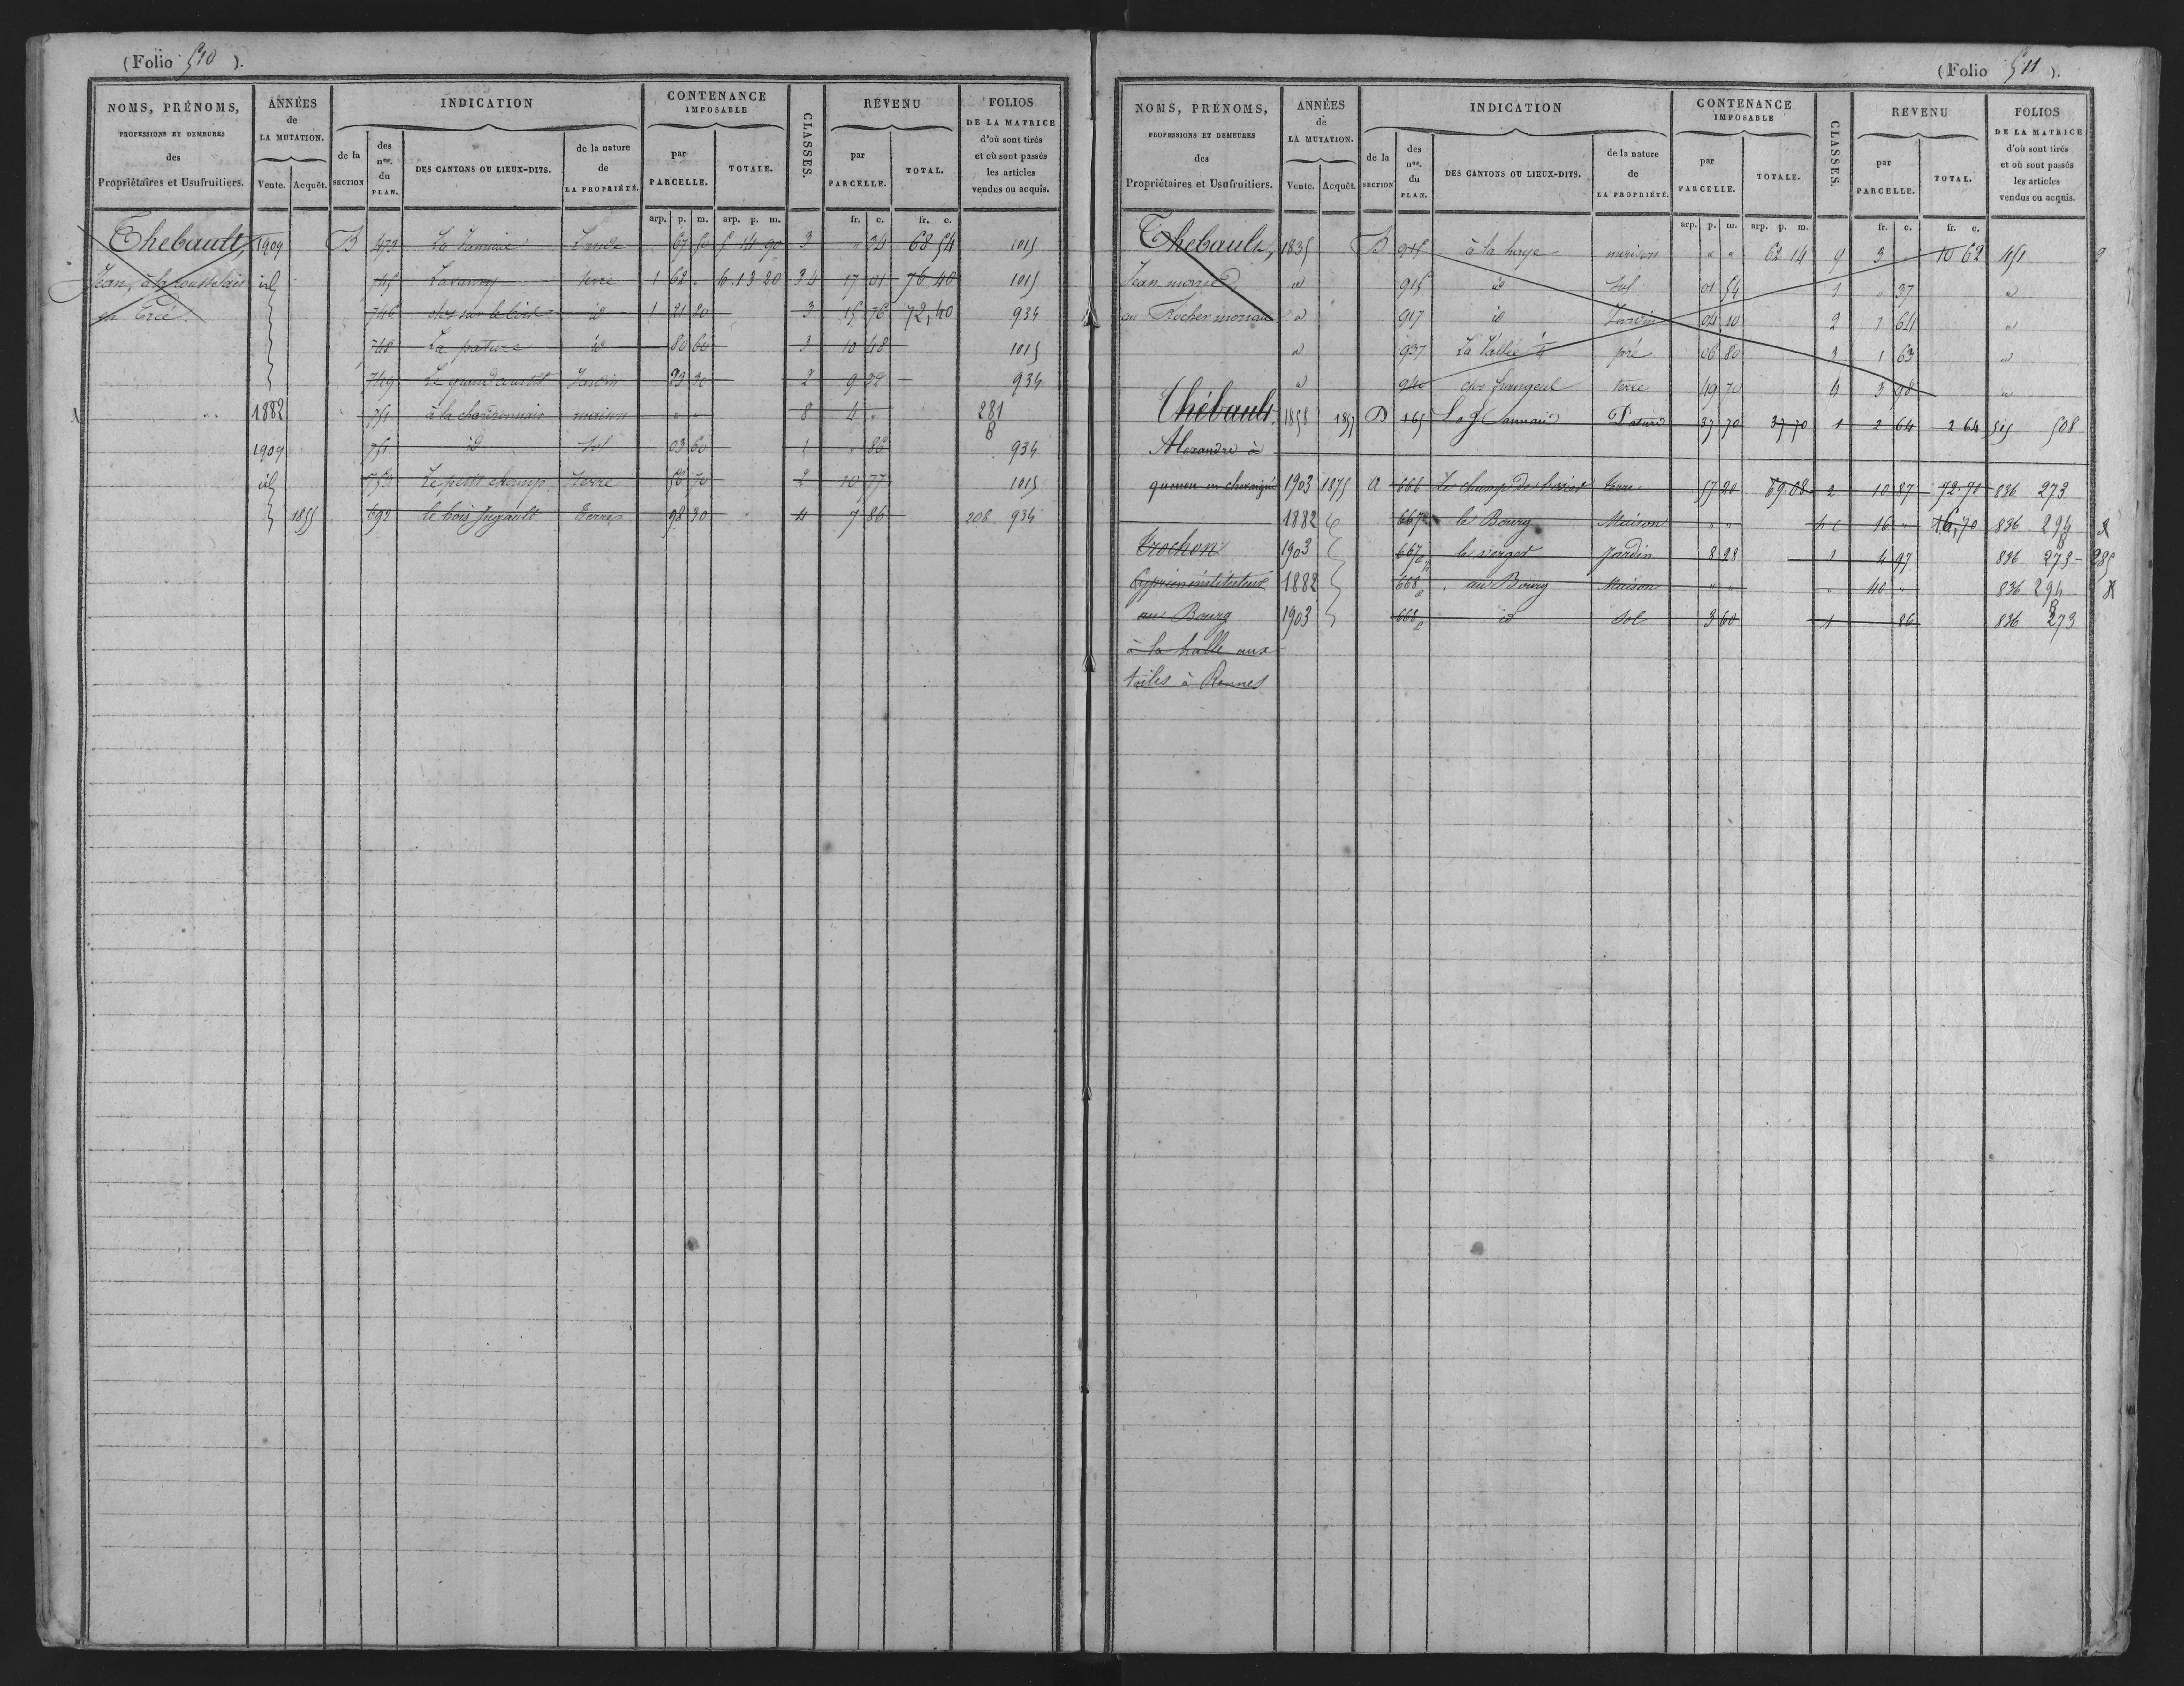 (Folio 510 ).
NOMS, PRÉNOMS, PROFESSIONS ET DEMEURES des Propriétaires et Usufruitiers.
ANNÉES de LA MUTATION. Vente. Acquêt.
INDICATION de la SECTION des nos. du PLAN. DES CANTONS OU LIEUX-DITS. de la nature de LA PROPRIÉTÉ.
CONTENANCE IMPOSABLE par PARCELLE. TOTALE.
CLASSES.
REVENU par PARCELLE. TOTAL.
FOLIOS DE LA MATRICE d'où sont tirés et où sont passés les articles vendus ou acquis.
arp. p. m. arp. p. m. fr. c. fr. c.
Thebault, 1909 B 473 La Lande 67 50 5 14 90 3 " 34 68 54 1015
Jean, à la id 745 terre 1 62 " 6.13 20 3 4 17 01 76 40 1015
en Creé. 746 clos sur le bois id 1 21 20 3 15 76 72,40 934
748 La pature id 80 60 3 10 48 1015
749 Le grand Jardin 23 30 2 9 32 934
1882 751 à la chardronnais maison " " 8 4 " 281 B
1909 751 id sol 03 60 1 " 86 934
id 753 Le petit champ terre 53 70 2 10 77 1015
1855 692 le bois Jugault Terre 98 30 4 7 86 208 934
(Folio 511 ).
NOMS, PRÉNOMS, PROFESSIONS ET DEMEURES des Propriétaires et Usufruitiers.
ANNÉES de LA MUTATION. Vente. Acquêt.
INDICATION de la SECTION des nos. du PLAN. DES CANTONS OU LIEUX-DITS. de la nature de LA PROPRIÉTÉ.
CONTENANCE IMPOSABLE par PARCELLE. TOTALE.
CLASSES.
REVENU par PARCELLE. TOTAL.
FOLIOS DE LA MATRICE d'où sont tirés et où sont passés les articles vendus ou acquis.
arp. p. m. arp. p. m. fr. c. fr. c.
Thebault, 1835 B 915 à la haye maison " " 62 14 9 3 " 10 62 451 2
Jean id 915 id sol 01 54 1 " 37 id
au Rocher id 917 id Jardin 04 10 2 1 64 id
id 937 La Vallée 1/4 pré 06 80 3 1 63 id
id 940 clos terre 49 70 4 3 98 id
Thébault, 1858 1857 D 165 Pature 37 70 37 70 1 2 64 2 64 515 508
Alexandre à
quenon en chevaigné 1903 1875 A 666 Le champ des terre 57 20 69.08 2 10 87 72.70 836 273
1882 667 le Bourg Maison " " 16 " 16,70 836 294 B
Trochon 1903 667 le verger Jardin 8 28 1 4 97 836 273 - 985
Cyprien instituteur 1882 668 au Bourg Maison " " " 40 " 836 294 B
au Bourg 1903 668 id sol 3 60 1 86 836 273
à la halle aux
toiles à Rennes